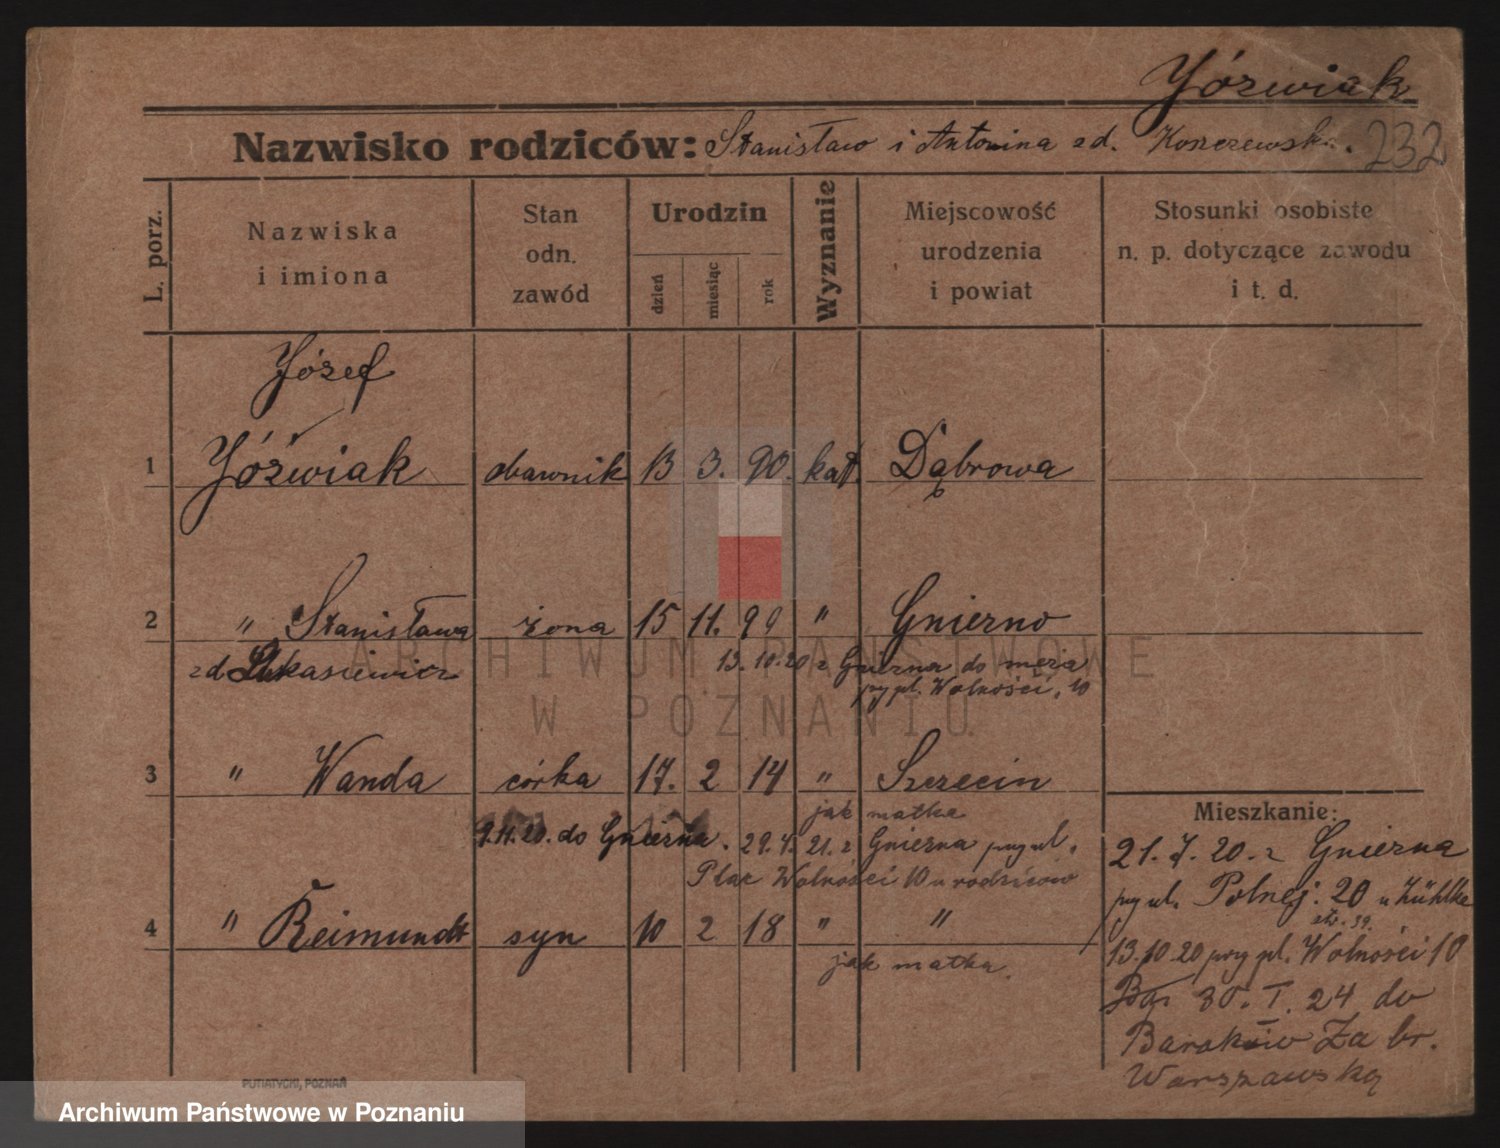 Józwiak
Nazwisko rodziców: Stanisław i Antonina zd. Koszczewska.
232
L. porz.
Nazwiska
i imiona
Stan
odn.
zawód
Urodzin
dzień
miesiąc
rok
Wyznanie
Miejscowość
urodzenia
i powiat
Stosunki osobiste
n. p. dotyczące zawodu
i t. d.
Józef
1 Jóźwiak 13 3. 90. kat. Dąbrowa
2 " Stanisława żona 15 11. " Gniezno
zd. Łukasiewicz 13.10.20 z Gniezna do męża
przy pl. Wolności, 10
3 " Wanda córka 17. 2 14 " Szczecin
jak matka
9.11.20. do Gniezna. 29.4.21. z Gniezna przy ul.
Plac Wolności 10 u rodziców
4 " Reimundt syn 10 2 18 " "
jak matka.
Mieszkanie:
21.7.20. z Gniezna
przy ul. Polnej 20 u Zühlke
13.10.20 przy pl. Wolności 10
30. I. 24 do
Baraków Za br.
Warszawską
PUTIATYCKI, POZNAŃ
ARCHIWUM PAŃSTWOWE
W POZNANIU
Archiwum Państwowe w Poznaniu